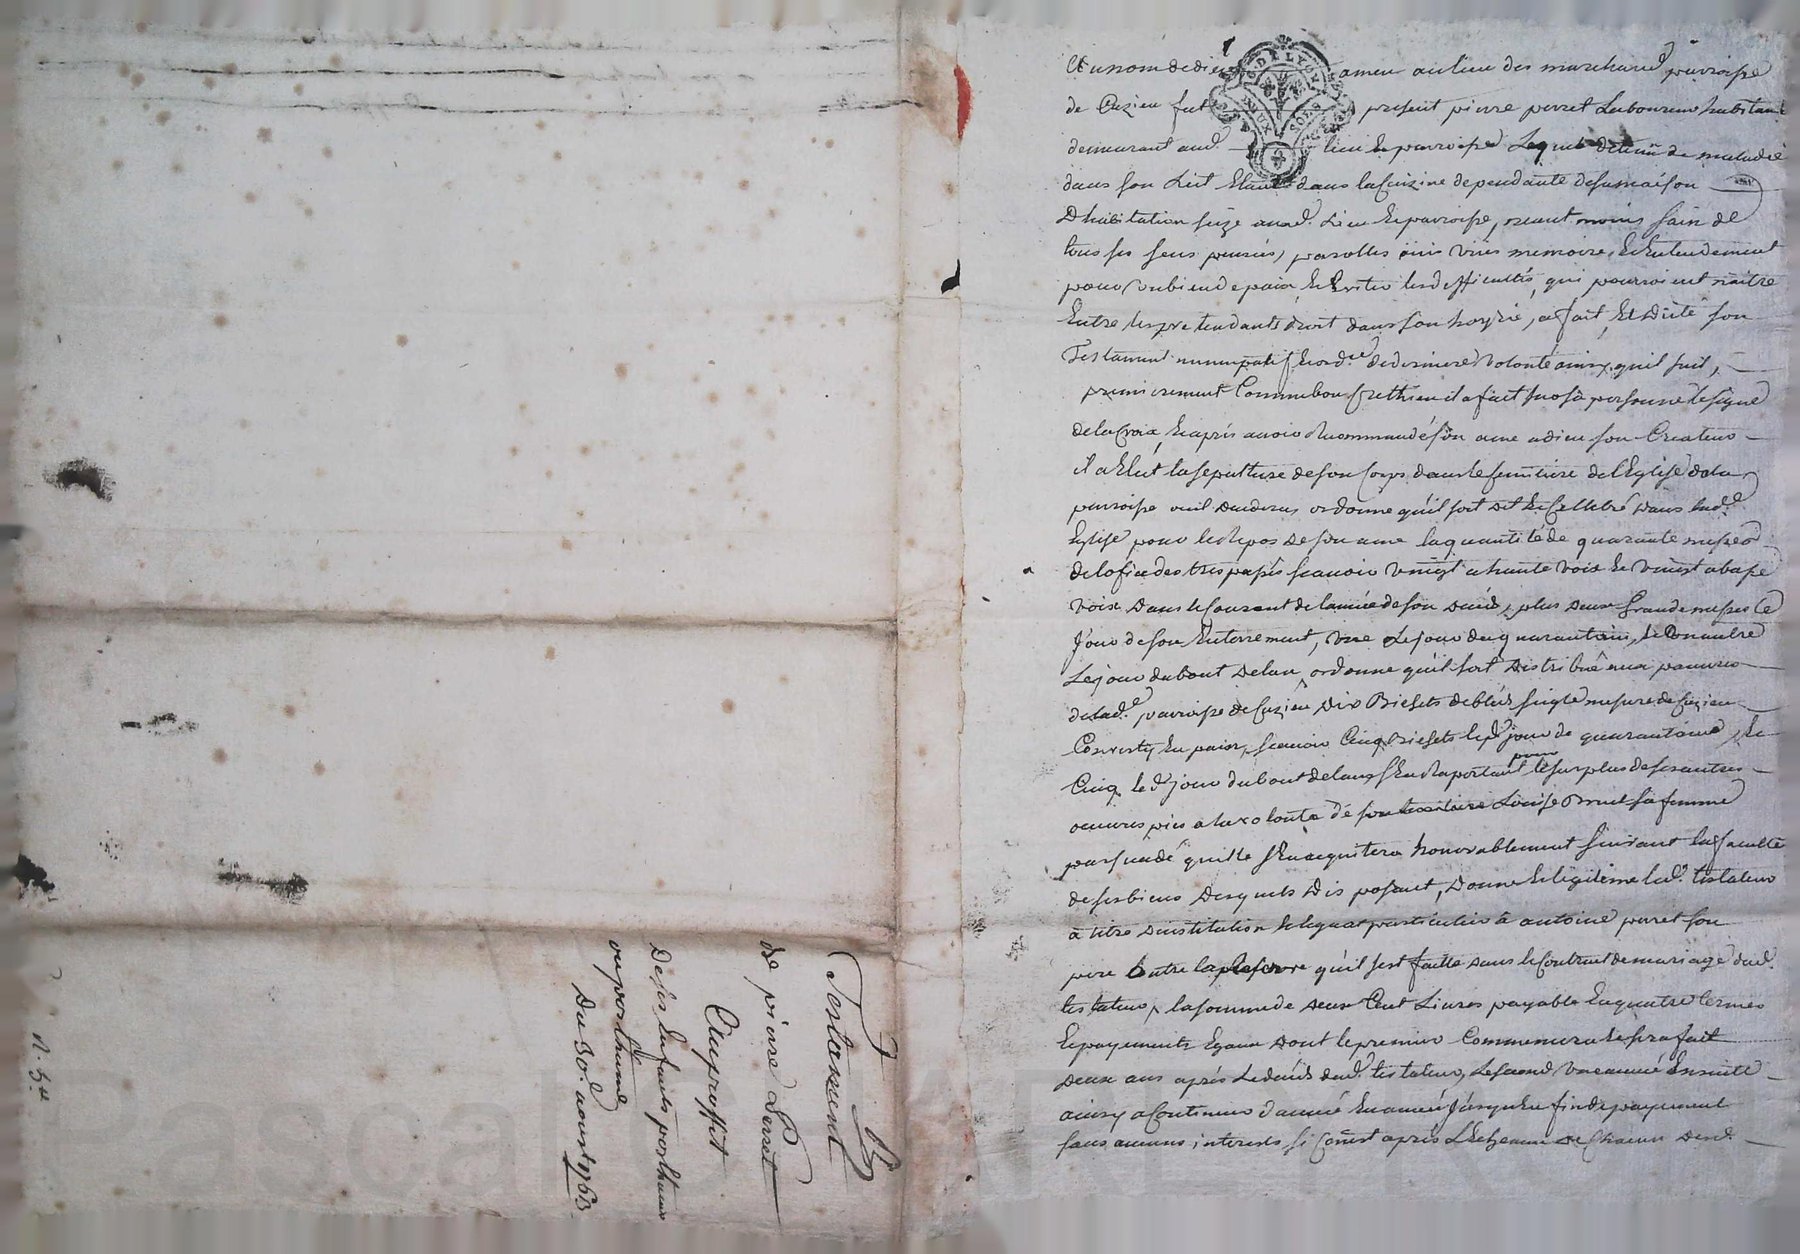 Testament
de pierre Perret
Au proffit
de ses Enfants posthumes
ou posthume
Du 30.e aoust 1763
N. 54
Au nom de dieu amen au lieu des marchand parroisse
de Cuzieu fut present pierre perret Laboureur habitant
demeurant aud. lieu & parroisse Lequel détenu de maladie
dans son Lit Etant dans la Cuizine dependante de sa maison
D'habitation size aud. Lieu & parroisse, neant moins sain de
tous ses sens pensées, parolles ouie vües memoire, Et Entendement
pour un bien de paix, Et Eviter les difficultés, qui pourroient naître
Entre les pretendants droit dans son hoyrie, a fait, Et Dicté son
Testament nuncupatif de derniere volonté ainsy quil suit,
premierement Comme bon Crethien il a fait sur sa personne le signe
de la Croix Et après avoir Recommandé son ame a dieu son Createur
il a Elut la sepulture de son Corps dans le semetiere de l'Eglise de la
parroise ou il deceder ordonne qu'il soit dit Et Cellebré dans lad.e
Eglise pour le Repos de son ame la quantité de quarante messes
de lofice des trepassés scavoir vingt a haute voix Et vingt a basse
voix Dans le Courant de l'année de son decès, plus deux Grande messes le
Jour de son Enterrement, une Le jour de quarantaine, Et Une autre
Le jour du bout de lan, ordonne qu'il soit distribué aux pauvres
de lad.e parroisse de Cuzieu Dix Bichets de bled seigle mesure de Cuzieu
Converty En pain, scavoir Cinq Bichets le d. jour de quarantaine, Et
Cinq le d. jour du bout de lans S'En Raportant pour le surplus de ses autres
oeuvres pies a la volonté de Louise Brut sa femme
persuadé quelle S'En acquitera honorablement suivant la faculté
de ses biens Desquels Disposant, Donne Et legitime led. testateur
à titre d'institution Et legat particulier à antoine perret son
pere outre la Reserve qu'il s'est faitte dans le Contrat de mariage dud.
testateur, la somme de deux Cent Livres payable En quatre termes
Et payements Egaux dont le premier Commencera Et sera fait
deux ans après Le decès dud. testateur, Le second une année Ensuitte
ainsy a Continuer d'année En année Jusqu'En fin de payement
sans aucuns interests si Ce n'est après L'Echeance de Chacun desd.